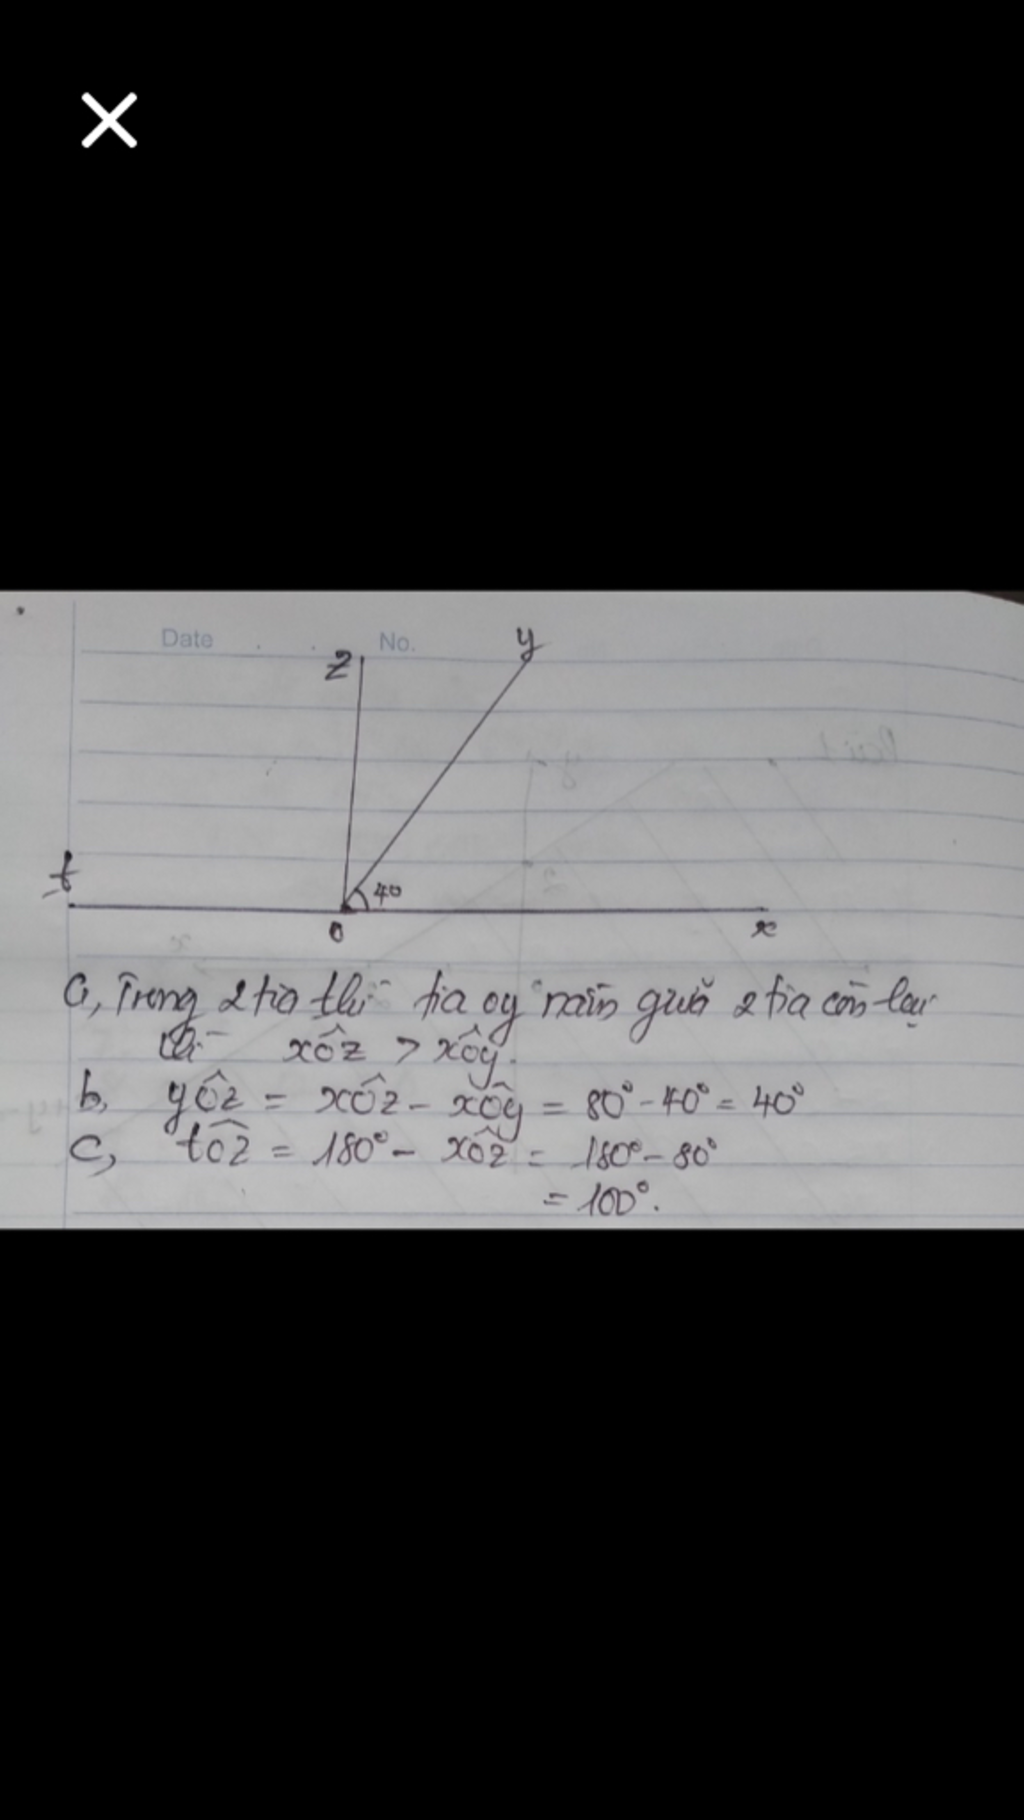 Date No.
z y
t
40
O x
a, Trong 2 tia thì tia oy nằm giữa 2 tia còn lại
vì xÔz > xÔy.
b, yÔz = xÔz - xÔy = 80° - 40° = 40°
c, tÔz = 180° - xÔz = 180° - 80°
= 100°.